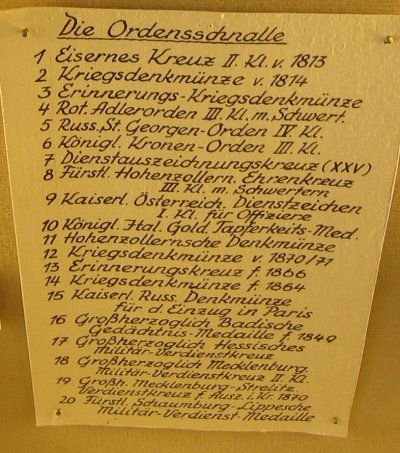 Die Ordensschnalle
1 Eisernes Kreuz II. Kl. v. 1813
2 Kriegsdenkmünze v. 1814
3 Erinnerungs-Kriegsdenkmünze
4 Rot. Adlerorden III. Kl. m. Schwert.
5 Russ. St. Georgen-Orden IV. Kl.
6 Königl. Kronen-Orden III. Kl.
7 Dienstauszeichnungskreuz (XXV)
8 Fürstl. Hohenzollern. Ehrenkreuz
III. Kl. m. Schwertern
9 Kaiserl. Österreich. Dienstzeichen
I. Kl. für Offiziere
10 Königl. Ital. Gold. Tapferkeits-Med.
11 Hohenzollernsche Denkmünze
12 Kriegsdenkmünze v. 1870/71
13 Erinnerungskreuz f. 1866
14 Kriegsdenkmünze f. 1864
15 Kaiserl. Russ. Denkmünze
für d. Einzug in Paris
16 Großherzoglich Badische
Gedächtnis-Medaille f. 1849
17 Großherzoglich Hessisches
Militär-Verdienstkreuz
18 Großherzoglich Mecklenburg.
Militär-Verdienstkreuz II. Kl.
19 Großh. Mecklenburg-Strelitz.
Verdienstkreuz f. Ausz. i. Kr. 1870
20 Fürstl. Schaumburg-Lippesche
Militär-Verdienst-Medaille